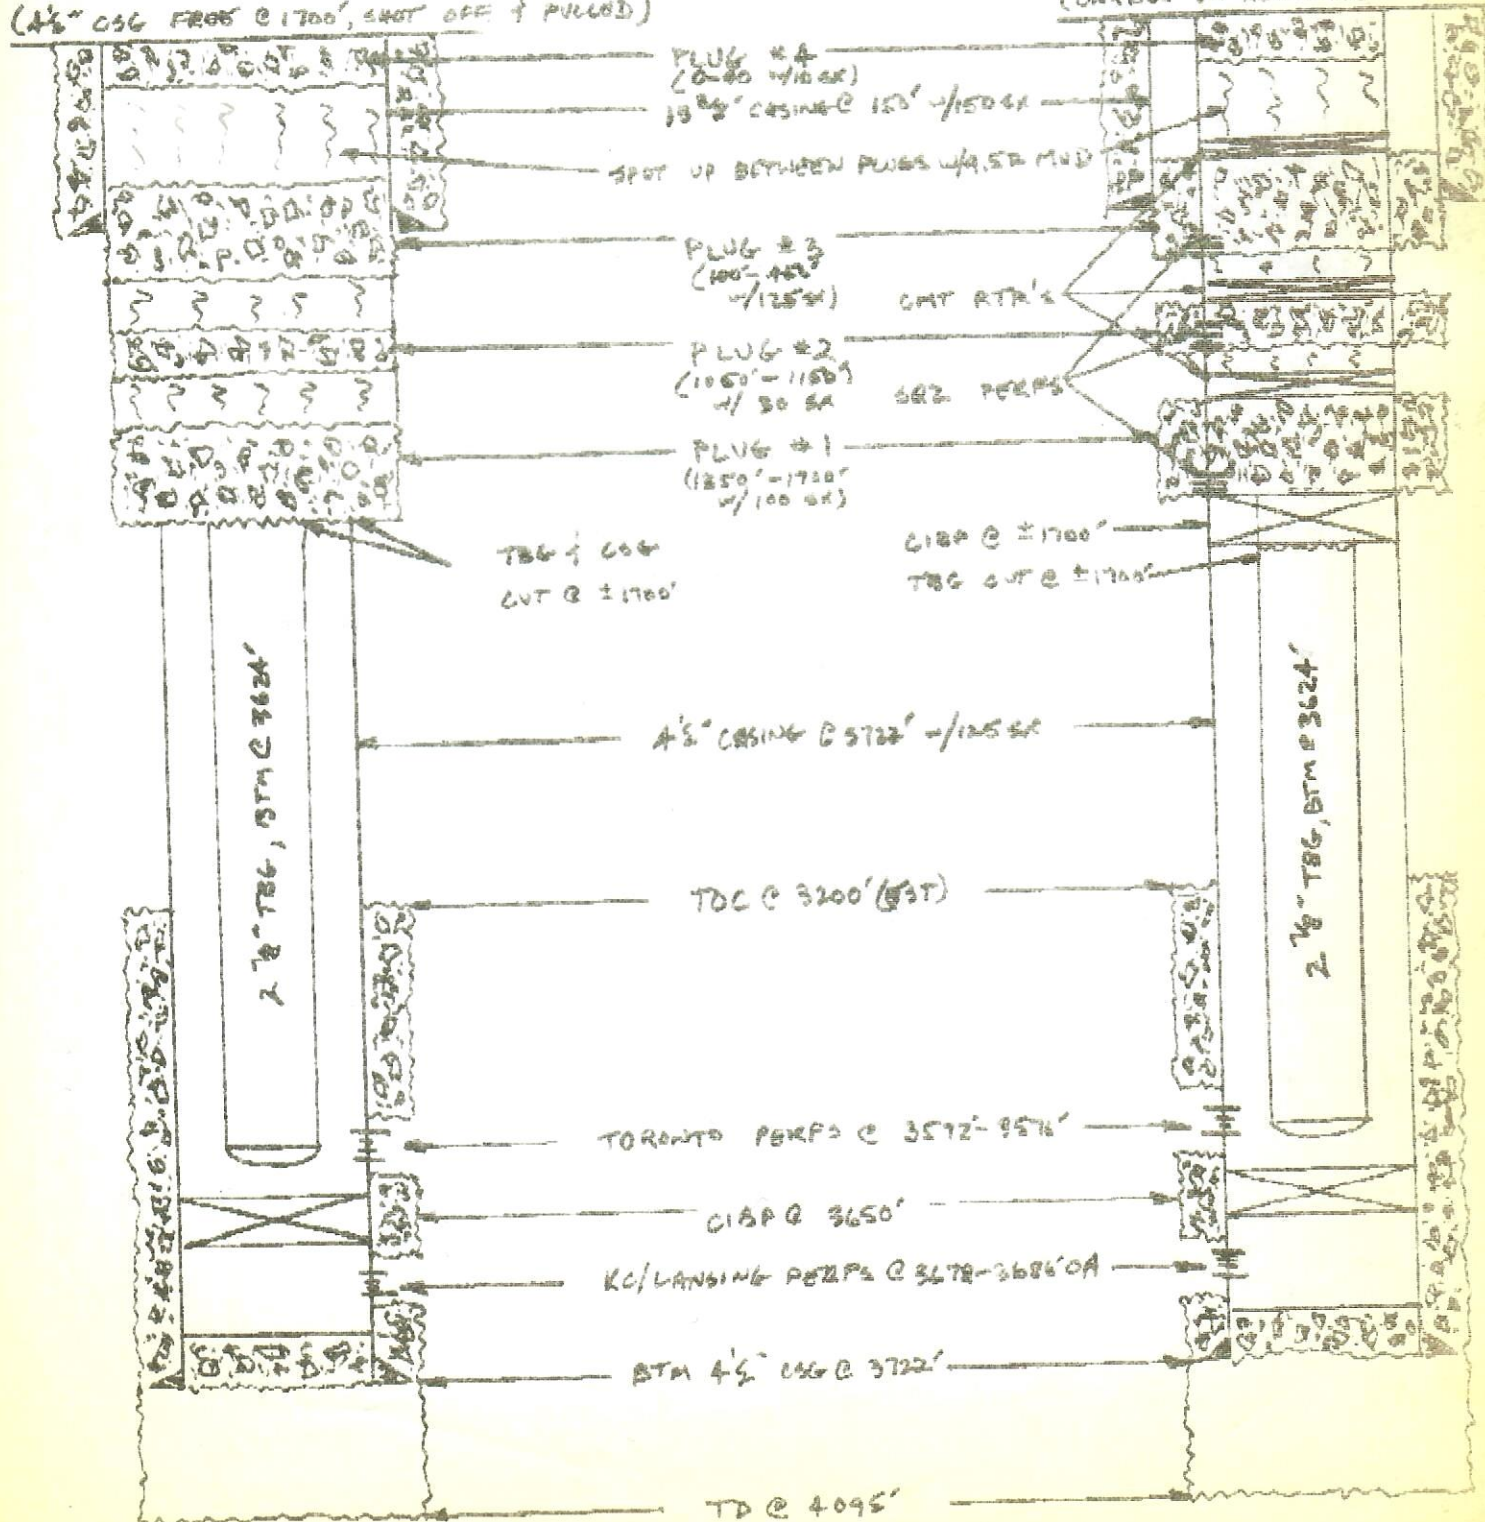 (4½" CSG FREE @ 1700', SHOT OFF & PULLED)
PLUG #4
(0-40 w/10 sx)
CASING @ 150' w/150 sx
SPOT UP BETWEEN PLUGS w/9.5# MUD
PLUG #3
w/125 sx)
CMT RTR'S
PLUG #2
(1050'-1150'
w/ 30 sx
SQZ PERFS
PLUG #1
w/100 sx)
TBG & CSG
CUT @ ±1700'
CIBP @ ±1700'
TBG CUT @ ±1700'
2 ⅞" TBG, BTM @ 3624'
2 ⅞" TBG, BTM @ 3624'
4½" CASING @ 3722' w/125 sx
TOC @ 3200' (EST)
TORONTO PERFS @ 3572'-3576'
CIBP @ 3650'
KC/LANSING PERFS @ 3678-3686' OA
BTM 4½" CSG @ 3722'
TD @ 4095'